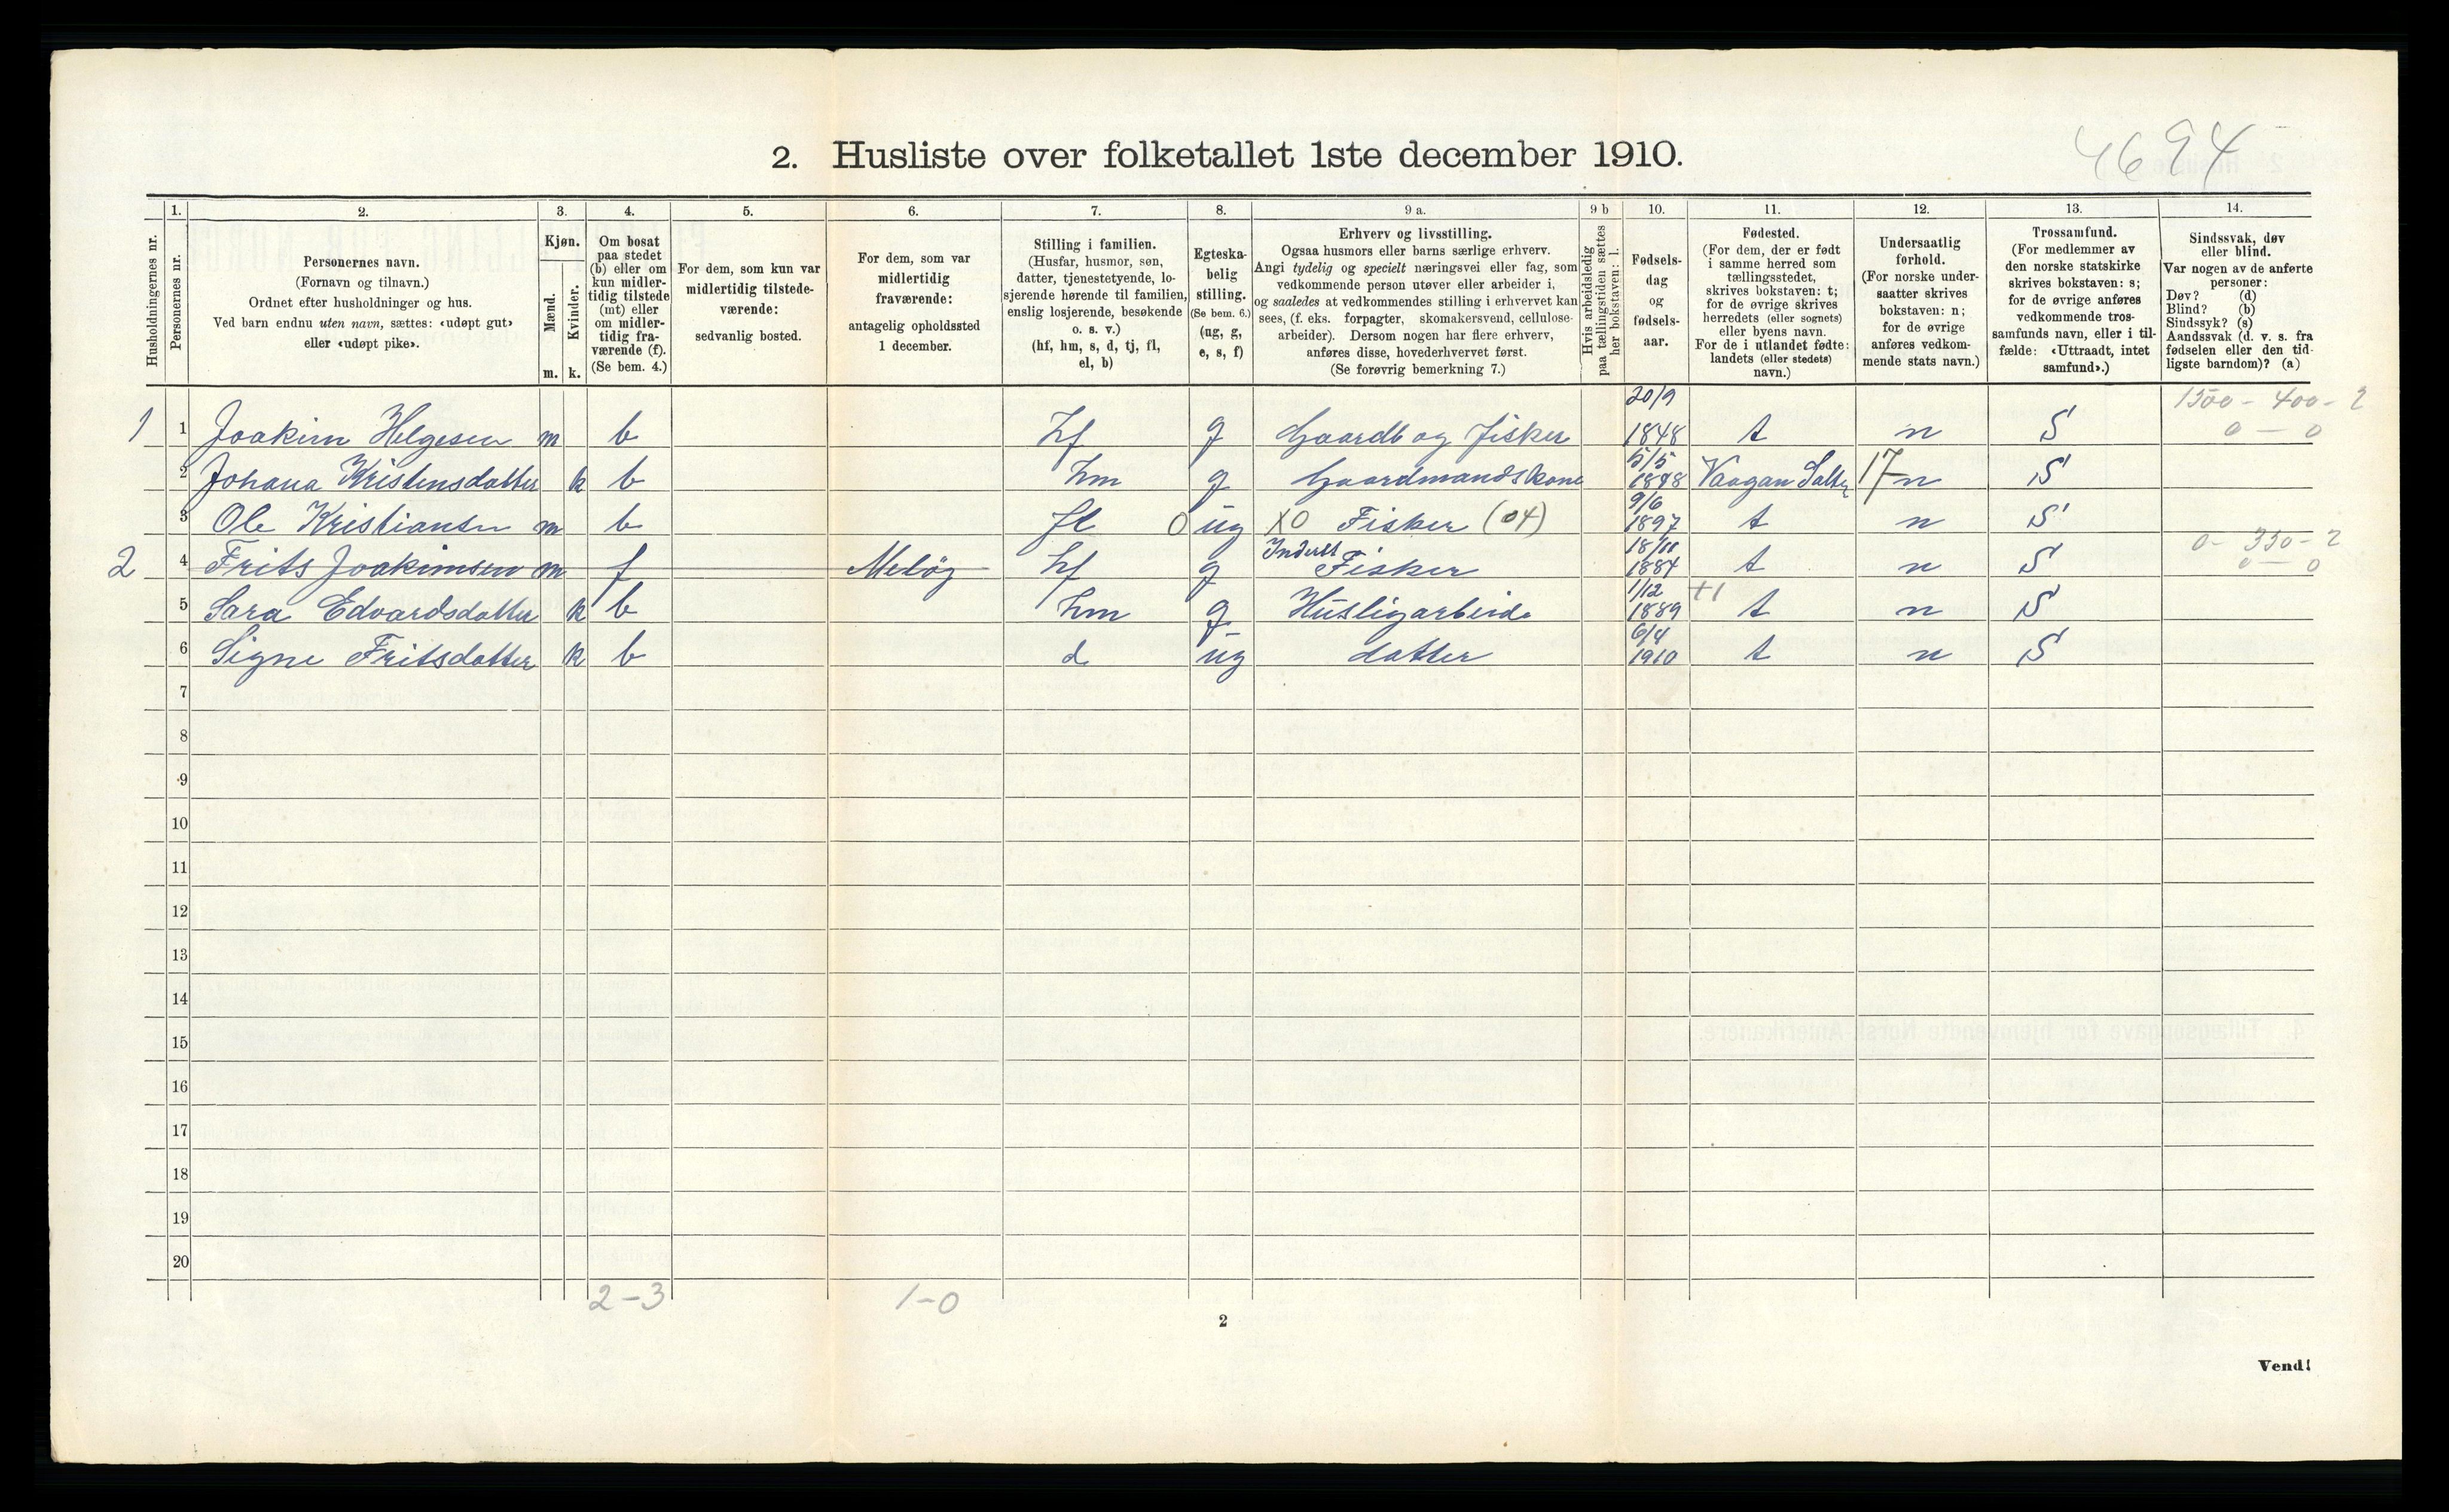 4694
2. Husliste over folketallet 1ste december 1910.
Husholdningernes nr.
1.
Personernes nr.
2.
Personernes navn.
(Fornavn og tilnavn.)
Ordnet efter husholdninger og hus.
Ved barn endnu uten navn, sættes: «udøpt gut»
eller «udøpt pike».
3.
Kjøn.
Mænd.
Kvinder.
m. k.
4.
Om bosat
paa stedet
(b) eller om
kun midler-
tidig tilstede
(mt) eller
om midler-
tidig fra-
værende (f).
(Se bem. 4.)
5.
For dem, som kun var
midlertidig tilstede-
værende:
sedvanlig bosted.
6.
For dem, som var
midlertidig
fraværende:
antagelig opholdssted
1 december.
7.
Stilling i familien.
(Husfar, husmor, søn,
datter, tjenestetyende, lo-
sjerende hørende til familien,
enslig losjerende, besøkende
o. s. v.)
(hf, hm, s, d, tj, fl,
el, b)
8.
Egteska-
belig
stilling.
(Se bem. 6.)
(ug, g,
e, s, f)
9 a.
Erhverv og livsstilling.
Ogsaa husmors eller barns særlige erhverv.
Angi tydelig og specielt næringsvei eller fag, som
vedkommende person utøver eller arbeider i,
og saaledes at vedkommendes stilling i erhvervet kan
sees, (f. eks. forpagter, skomakersvend, cellulose-
arbeider). Dersom nogen har flere erhverv,
anføres disse, hovederhvervet først.
(Se forøvrig bemerkning 7.)
9 b
Hvis arbeidsledig
paa tællingstiden sættes
her bokstaven: l.
10.
Fødsels-
dag
og
fødsels-
aar.
11.
Fødested.
(For dem, der er født
i samme herred som
tællingsstedet,
skrives bokstaven: t;
for de øvrige skrives
herredets (eller sognets)
eller byens navn.
For de i utlandet fødte:
landets (eller stedets)
navn.)
12.
Undersaatlig
forhold.
(For norske under-
saatter skrives
bokstaven: n;
for de øvrige
anføres vedkom-
mende stats navn.)
13.
Trossamfund.
(For medlemmer av
den norske statskirke
skrives bokstaven: s;
for de øvrige anføres
vedkommende tros-
samfunds navn, eller i til-
fælde: «Uttraadt, intet
samfund».)
14.
Sindssvak, døv
eller blind.
Var nogen av de anførte
personer:
Døv? (d)
Blind? (b)
Sindssyk? (s)
Aandssvak (d. v. s. fra
fødselen eller den tid-
ligste barndom)? (a)
1 1 Joakim Helgesen m b hf g Gaardb og Fisker 20/9 1848 t n S 1500 - 400 - 2 0 - 0
2 Johana Kristensdatter k b hm g Gaardmandskone 5/5 1848 Vaagan Salten 17 n S
3 Ole Kristiansen m b fl 0 ug X0 Fisker (04) 9/6 1897 t n S
2 4 Frits Joakimsen m f Meløy hf g Fisker 18/11 1884 t n S 0 - 330 - 2 0 - 0
5 Sara Edvardsdatter k b hm g Husligarbeide 1/12 1889 +1 t n S
6 Signe Fritsdatter k b d ug datter 6/4 1910 t n S
7
8
9
10
11
12
13
14
15
16
17
18
19
20
2 - 3 1 - 0
2
Vend!